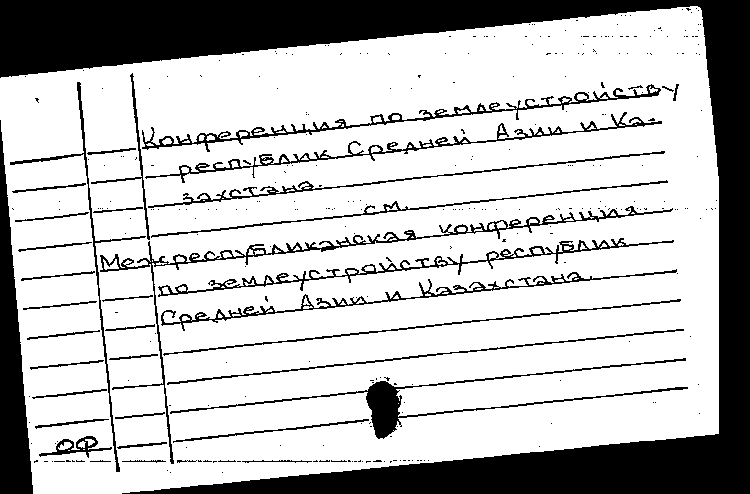 Конференция по землеустройству
республик Средней Азии и Ка-
захстана.
см.
Межреспубликанская конференция
по землеустройству республик
Средней Азии и Казахстана.
ОФ